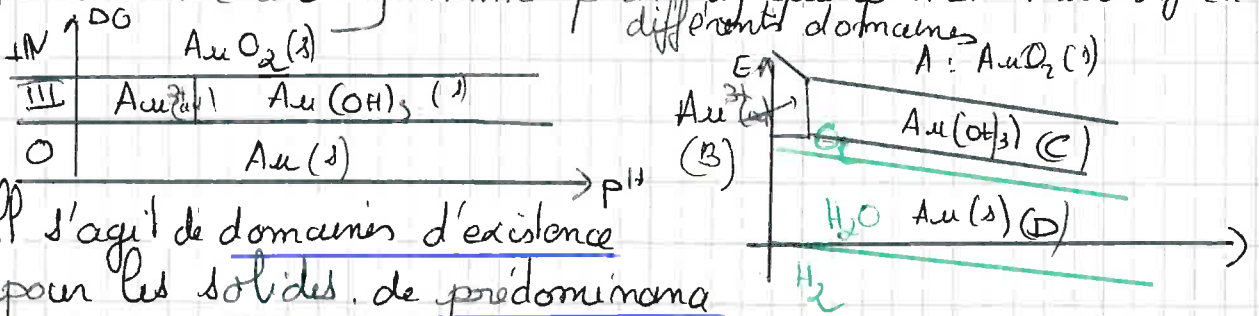 différents domaines
DO
+IV AuO₂(s)
III Au³⁺(aq) Au(OH)₃ (s)
O Au(s)
pH
Il s'agit de domaines d'existence
pour les solides. de prédominana
E A : AuO₂(s)
Au³⁺
(B)
Au(OH)₃ (C)
O₂
H₂O Au(s) (D)
H₂